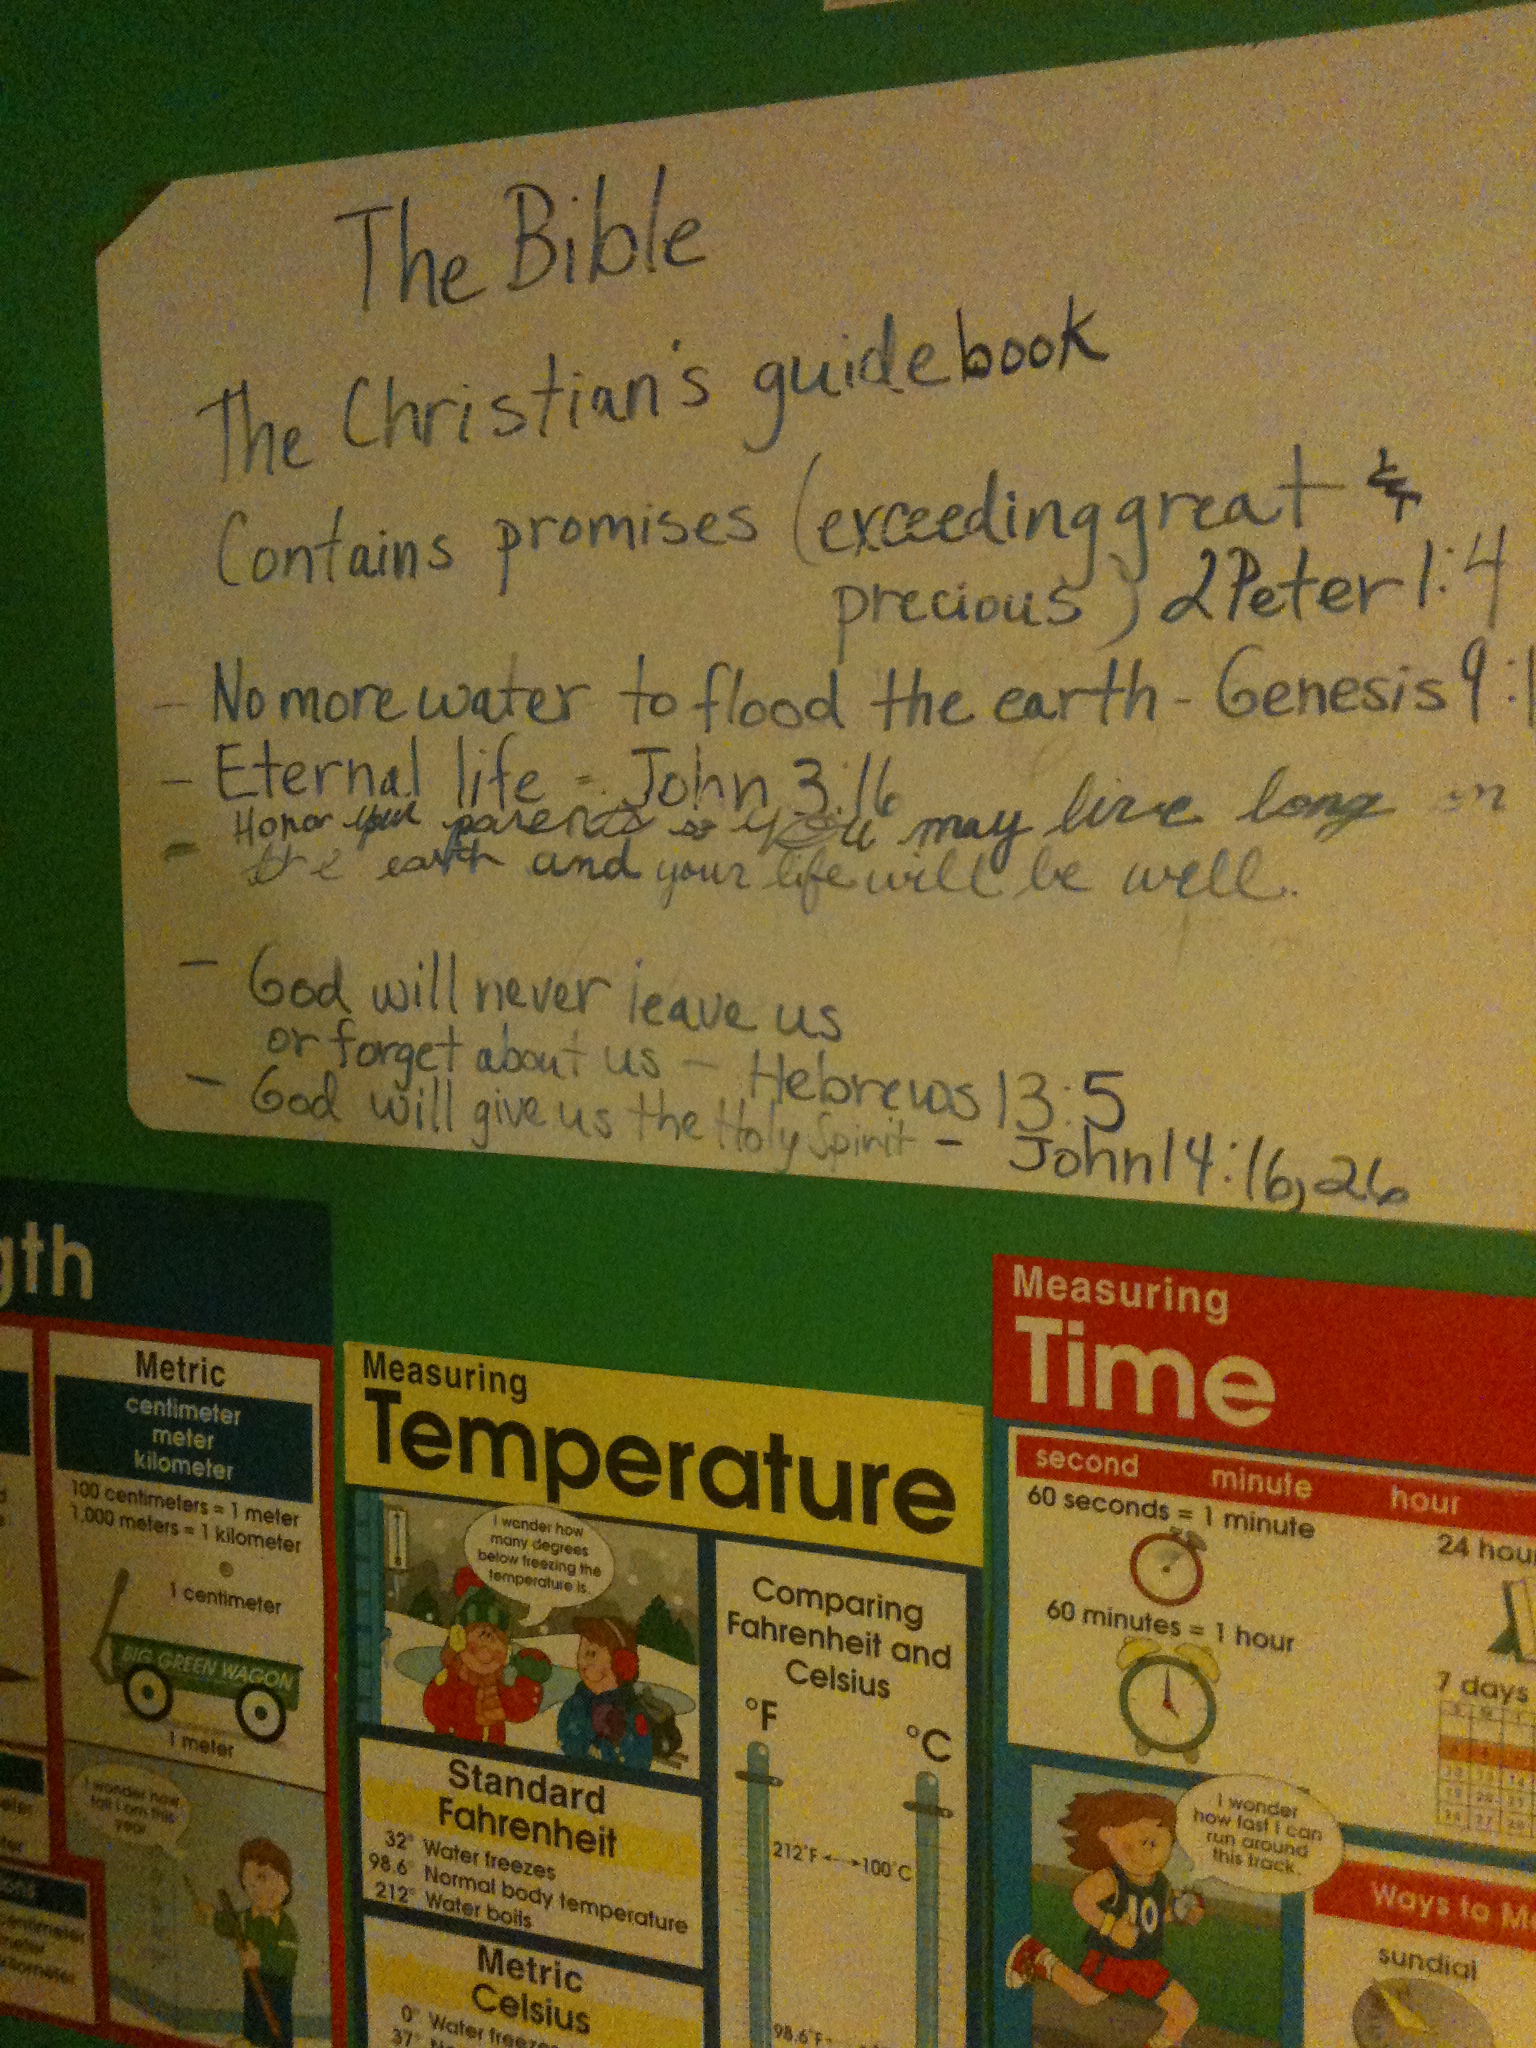 The Bible
The Christian's guidebook
Contains promises (exceeding great &
precious) 2 Peter 1:4
- No more water to flood the earth - Genesis 9:1
- Eternal life - John 3:16
- Honor your parents so you may live long on
the earth and your life will be well.
- God will never leave us
or forget about us - Hebrews 13:5
- God will give us the Holy Spirit - John 14:16,26
gth
Metric
centimeter
meter
kilometer
100 centimeters = 1 meter
1,000 meters = 1 kilometer
1 centimeter
BIG GREEN WAGON
1 meter
I wonder how
tall I am this
year
Measuring
Temperature
I wonder how
many degrees
below freezing the
temperature is.
Comparing
Fahrenheit and
Celsius
°F
°C
212°F 100°C
98.6°F
Standard
Fahrenheit
32° Water freezes
98.6° Normal body temperature
212° Water boils
Metric
Celsius
0° Water freeze
37°
Measuring
Time
second minute hour
60 seconds = 1 minute
24 hou
60 minutes = 1 hour
7 days
I wonder
how fast I can
run around
this track.
10
Ways to M
sundial